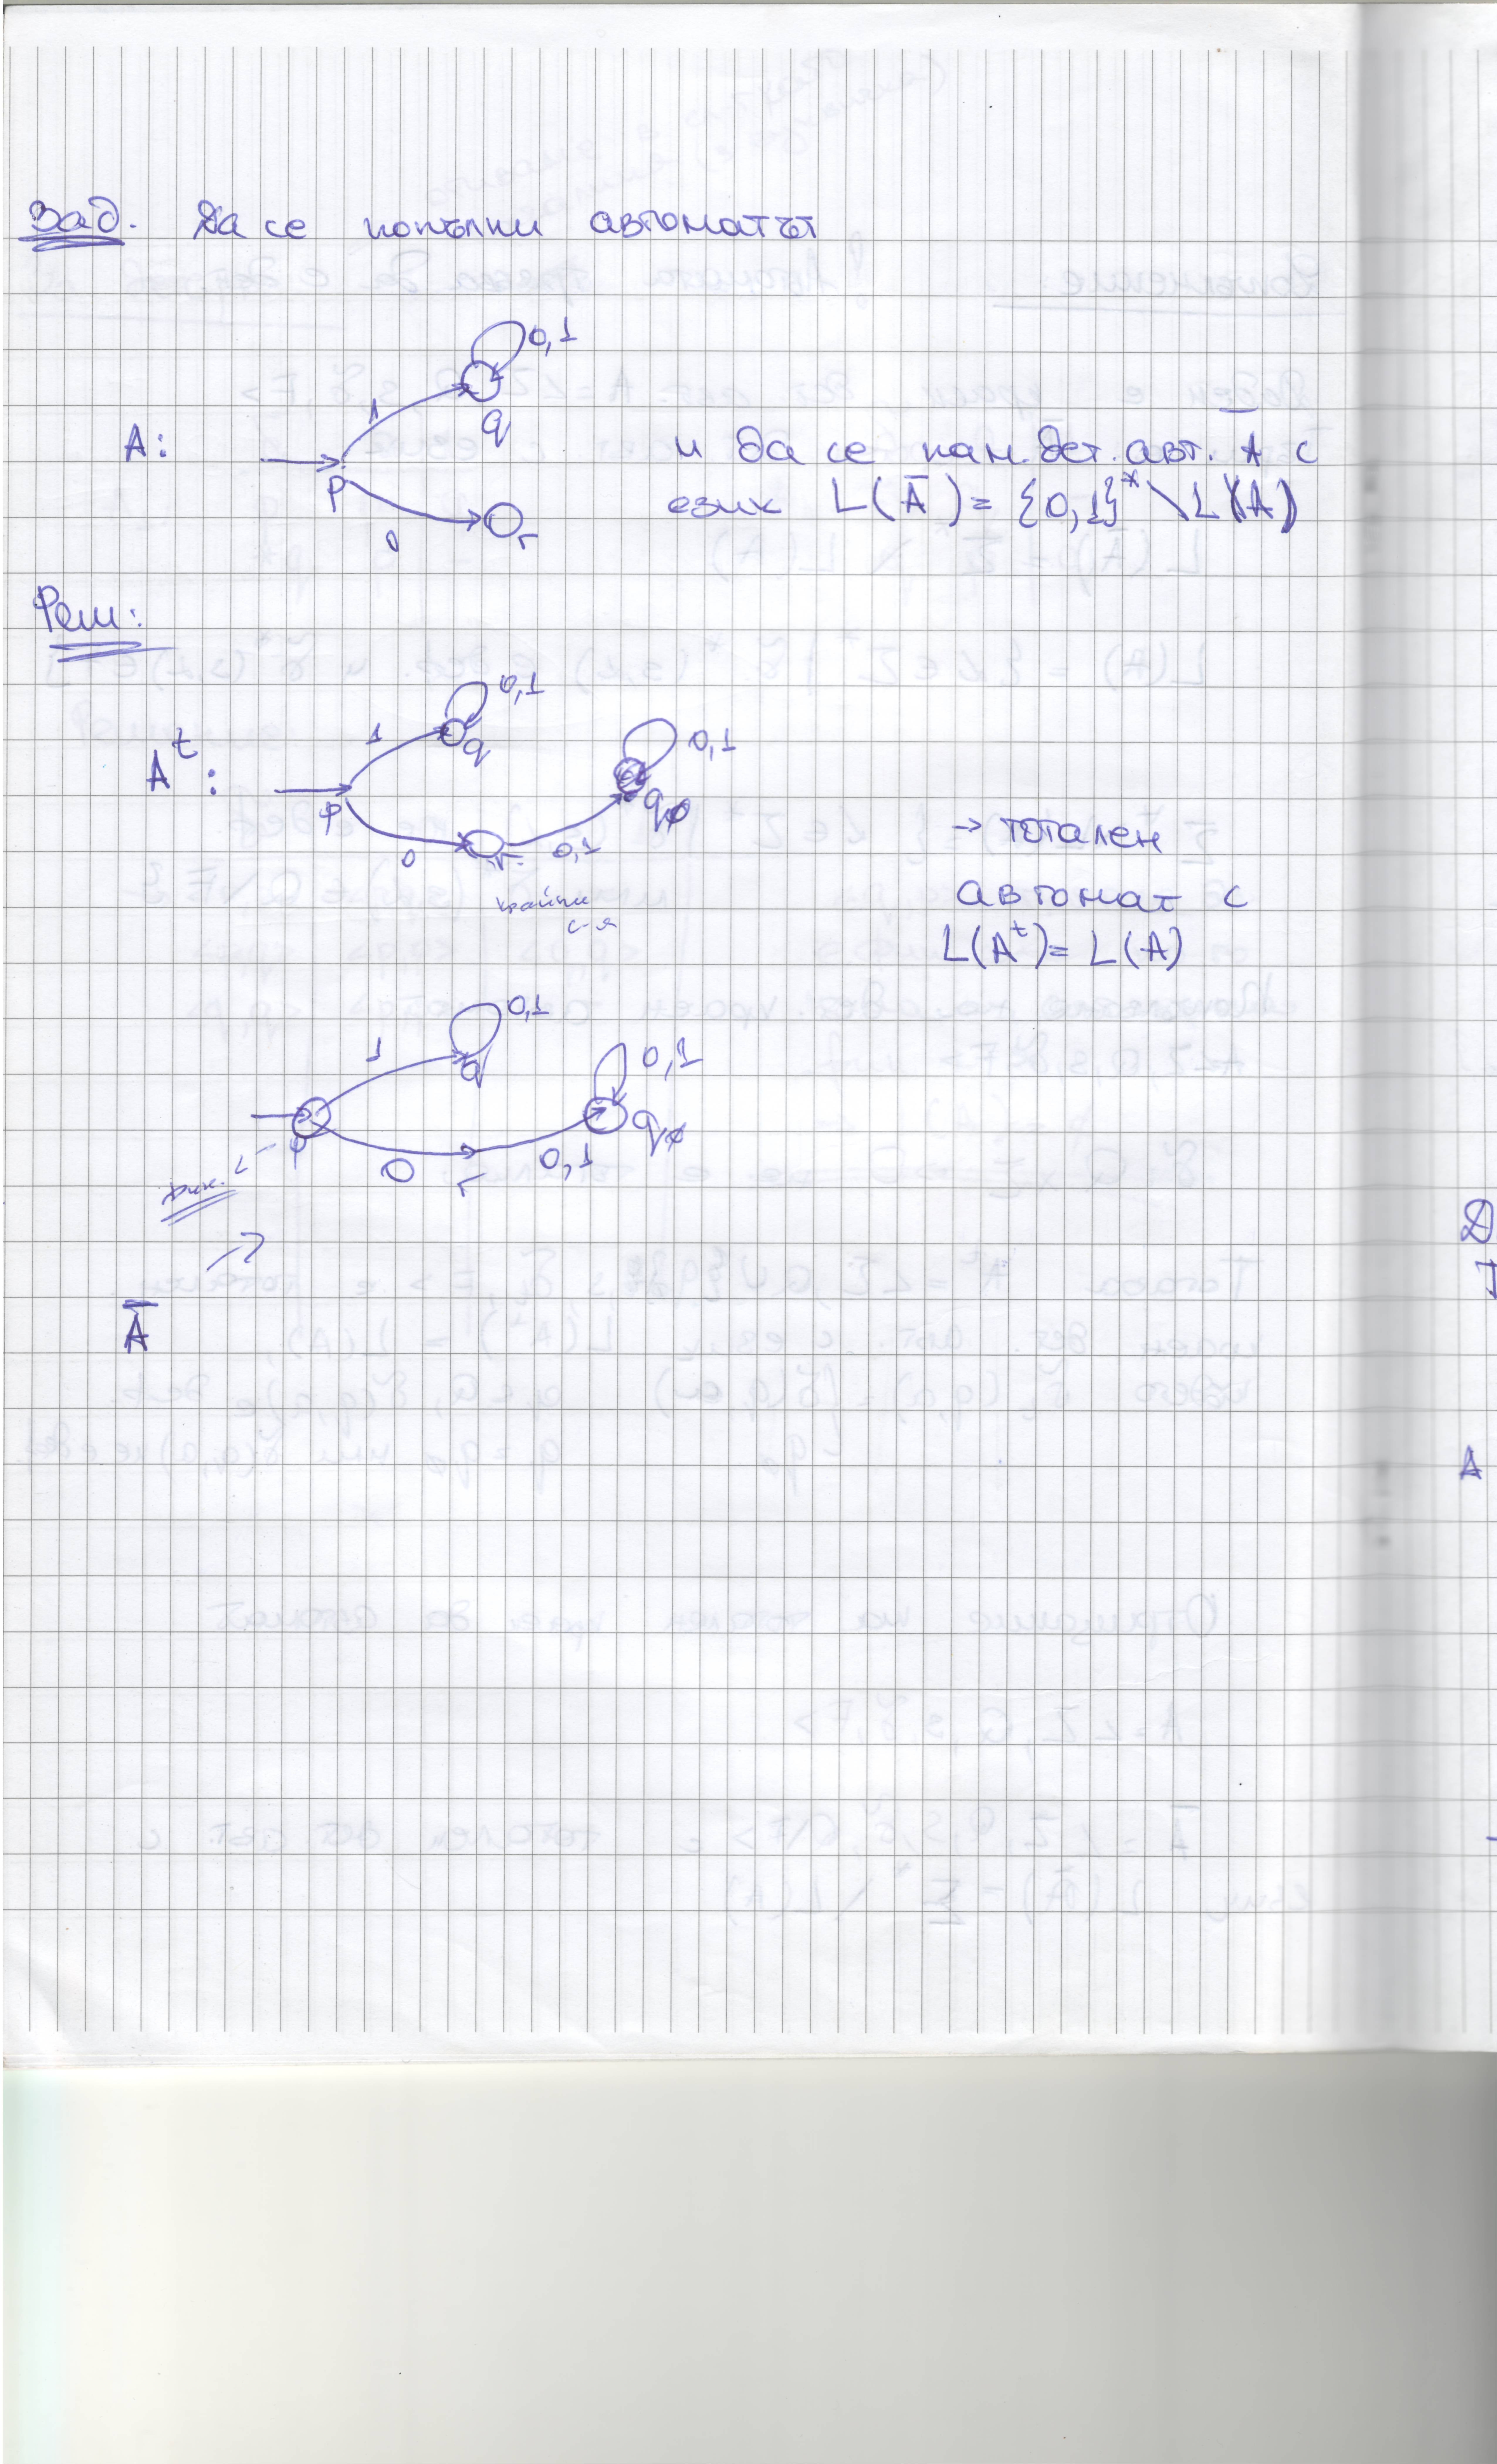 Зад. Да се попълни автоматът
0,1
1
q
A:
p
0
r
и да се нам. дет. авт. Ā с
език L(Ā) = {0,1}* \ L(A)
Реш:
0,1
1
q
0,1
Aᵗ:
p
q∅
0
r
0,1
крайни
с-я
→ тотален
автомат с
L(Aᵗ) = L(A)
0,1
1
q
0,1
q∅
p
0
r
0,1
Ā
Д
A